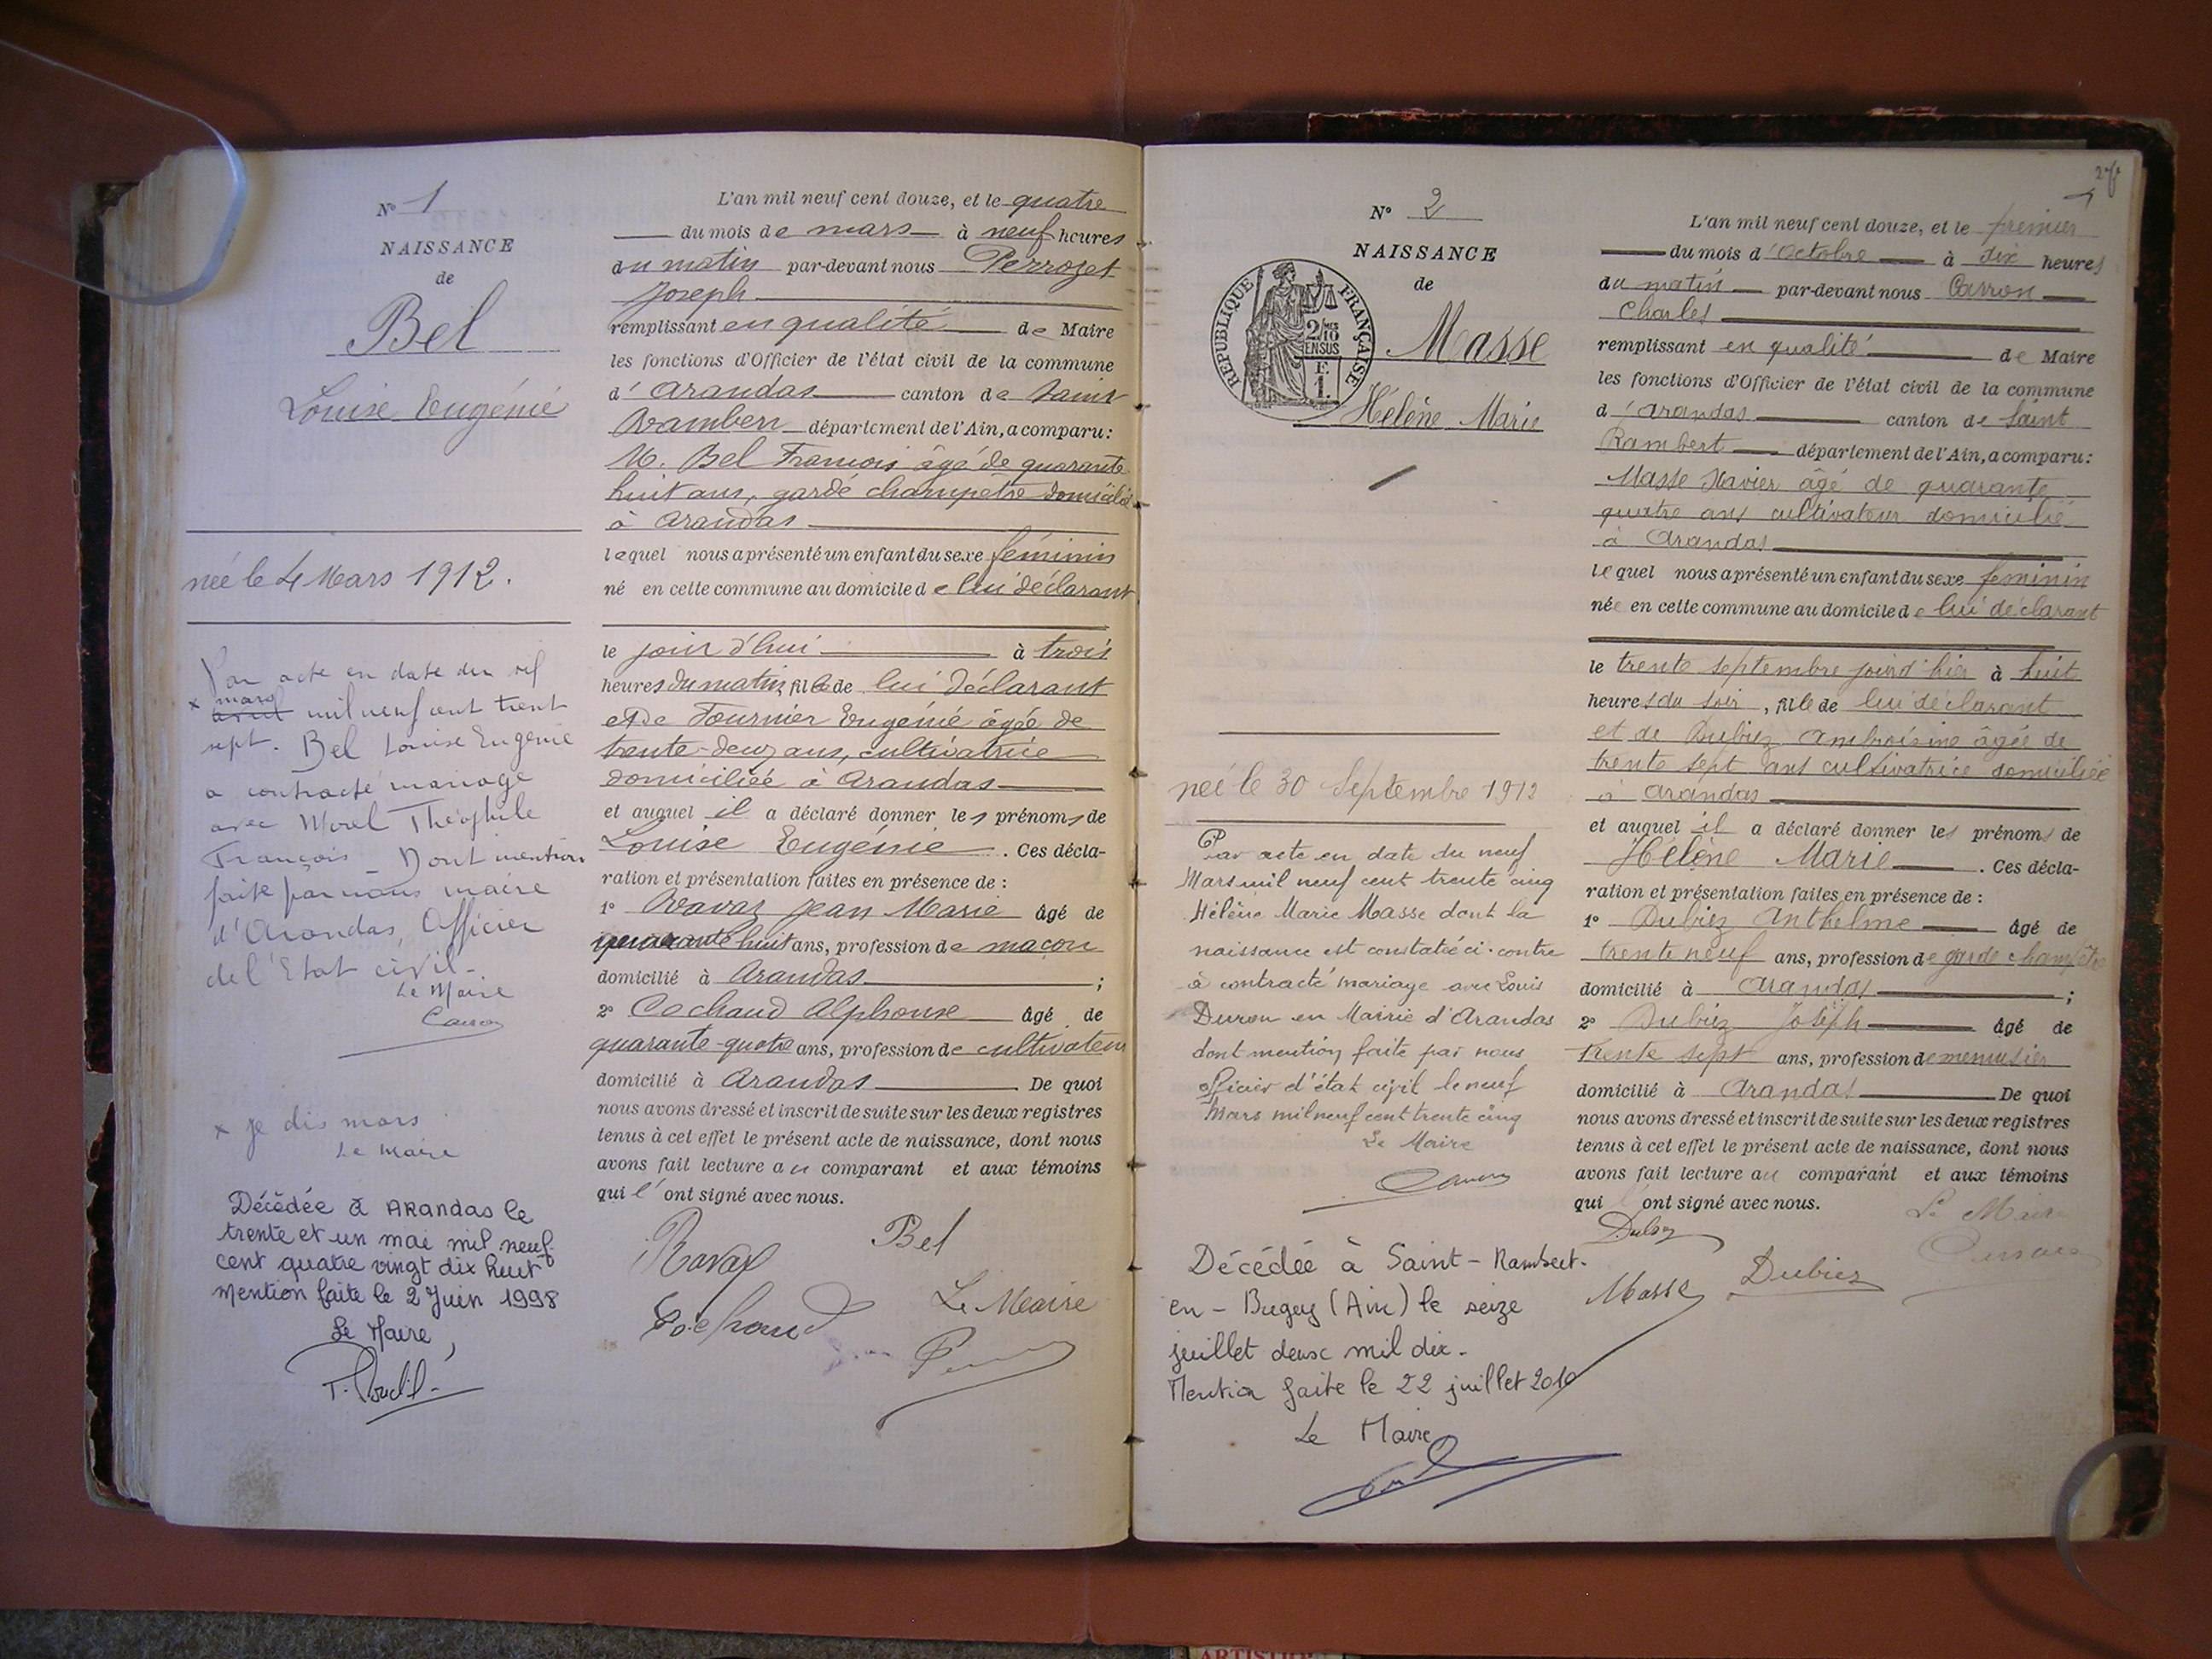 N° 1
NAISSANCE
de
Bel
Louise Eugénie
née le 4 Mars 1912.
Par acte en date du
x mars
avril mil neuf cent trent
sept. Bel Louise Eugénie
a contracté mariage
avec Morel Théophile
François Dont mention
faite par nous maire
d'Arandas, Officier
de l'Etat civil -
Le Maire
x je dis mars
Le Maire
Décédée à ARandas le
trente et un mai mil neuf
cent quatre vingt dix huit
Mention faite le 2 Juin 1998
Le Maire,
L'an mil neuf cent douze, et le quatre
du mois de mars à neuf heures
du matin par-devant nous Perrozet
Joseph
remplissant en qualité de Maire
les fonctions d'Officier de l'état civil de la commune
d'Arandas canton de Saint
Rambert département de l'Ain, a comparu:
M. Bel François âgé de quarante
huit ans, garde champêtre domicilié
à Arandas
lequel nous a présenté un enfant du sexe féminin
né en cette commune au domicile de lui déclarant
le jour d'hui à trois
heures du matin, fille de lui déclarant
et de Fournier Eugénie âgée de
trente-deux ans, cultivatrice
domiciliée à Arandas
et auquel il a déclaré donner les prénoms de
Louise Eugénie. Ces décla-
ration et présentation faites en présence de :
1° Ravaz Jean Marie âgé de
quarante huit ans, profession de maçon
domicilié à Arandas ;
2° Cochaud Alphonse âgé de
quarante-quatre ans, profession de cultivateur
domicilié à Arandas De quoi
nous avons dressé et inscrit de suite sur les deux registres
tenus à cet effet le présent acte de naissance, dont nous
avons fait lecture au comparant et aux témoins
qui l'ont signé avec nous.
Ravaz Bel
Cochaud Le Maire
N° 2
NAISSANCE
de
RÉPUBLIQUE FRANÇAISE
2/10 EN SUS
F.
1.
Masse
Hélène Marie
née le 30 Septembre 1912
Par acte en date du neuf
Mars mil neuf cent trente cinq
Hélène Marie Masse dont la
naissance est constatée ci-contre
a contracté mariage avec Louis
en Mairie d'Arandas
dont mention faite par nous
officier d'état civil le neuf
Mars mil neuf cent trente cinq
Le Maire
Décédée à Saint-Rambert-
en-Bugey (Ain) le seize
juillet deux mil dix.
Mention faite le 22 juillet 2010
Le Maire
L'an mil neuf cent douze, et le premier
du mois d'Octobre à dix heures
du matin par-devant nous Carron
Charles
remplissant en qualité de Maire
les fonctions d'Officier de l'état civil de la commune
d'Arandas canton de Saint
Rambert département de l'Ain, a comparu:
Masse Xavier âgé de quarante
quatre ans cultivateur domicilié
à Arandas
lequel nous a présenté un enfant du sexe féminin
née en cette commune au domicile de lui déclarant
le trente septembre jourd'hier à huit
heures du soir, fille de lui déclarant
et de Dubiez Ambroisine âgée de
trente sept ans cultivatrice domiciliée
à Arandas
et auquel il a déclaré donner les prénoms de
Hélène Marie. Ces décla-
ration et présentation faites en présence de :
1° Dubiez Anthelme âgé de
trente neuf ans, profession de garde champêtre
domicilié à Arandas ;
2° Dubiez Joseph âgé de
trente sept ans, profession de menuisier
domicilié à Arandas De quoi
nous avons dressé et inscrit de suite sur les deux registres
tenus à cet effet le présent acte de naissance, dont nous
avons fait lecture au comparant et aux témoins
qui l'ont signé avec nous.
Le Maire
Masse Dubiez